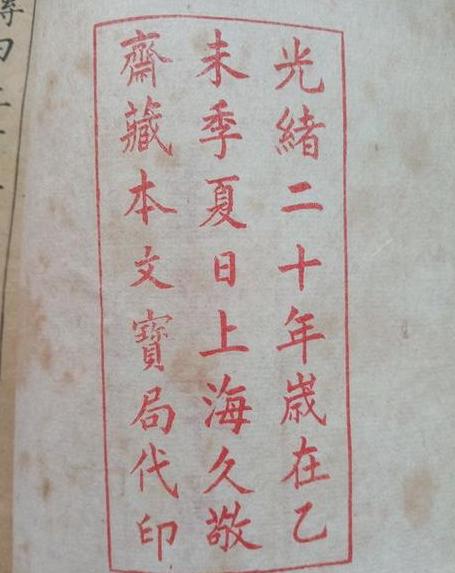 光緒二十年歲在乙
未季夏日上海久敬
齋藏本文寶局代印